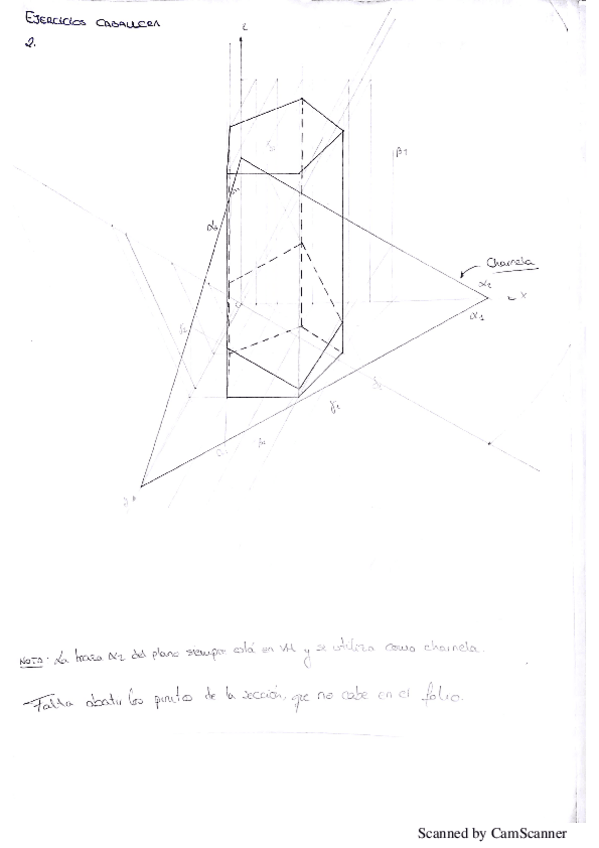 EJERCICIOS CABALLERA
2.
z
β1
Charnela
α2
x
α1
NOTA: La traza α2 del plano siempre está en VM y se utiliza como charnela.
Falta abatir los puntos de la sección, que no cabe en el folio.
Scanned by CamScanner